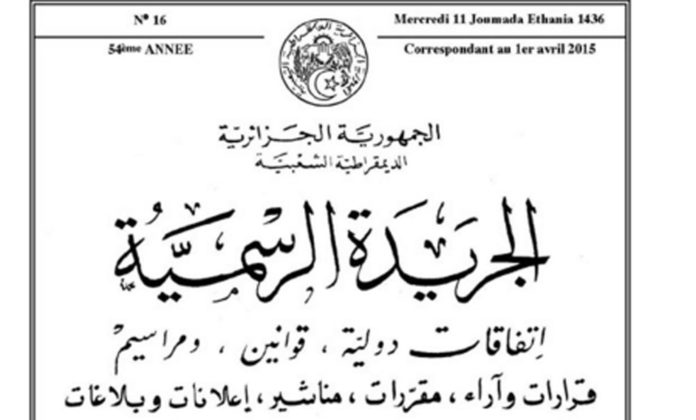 N° 16
Mercredi 11 Joumada Ethania 1436
54ème ANNEE
Correspondant au 1er avril 2015
الجمهورية الجزائرية
الديمقراطية الشعبية
الجريدة الرسمية
إتفاقات دولية ، قوانين ، ومراسيم
قرارات وآراء ، مقررات ، مناشير ، إعلانات وبلاغات